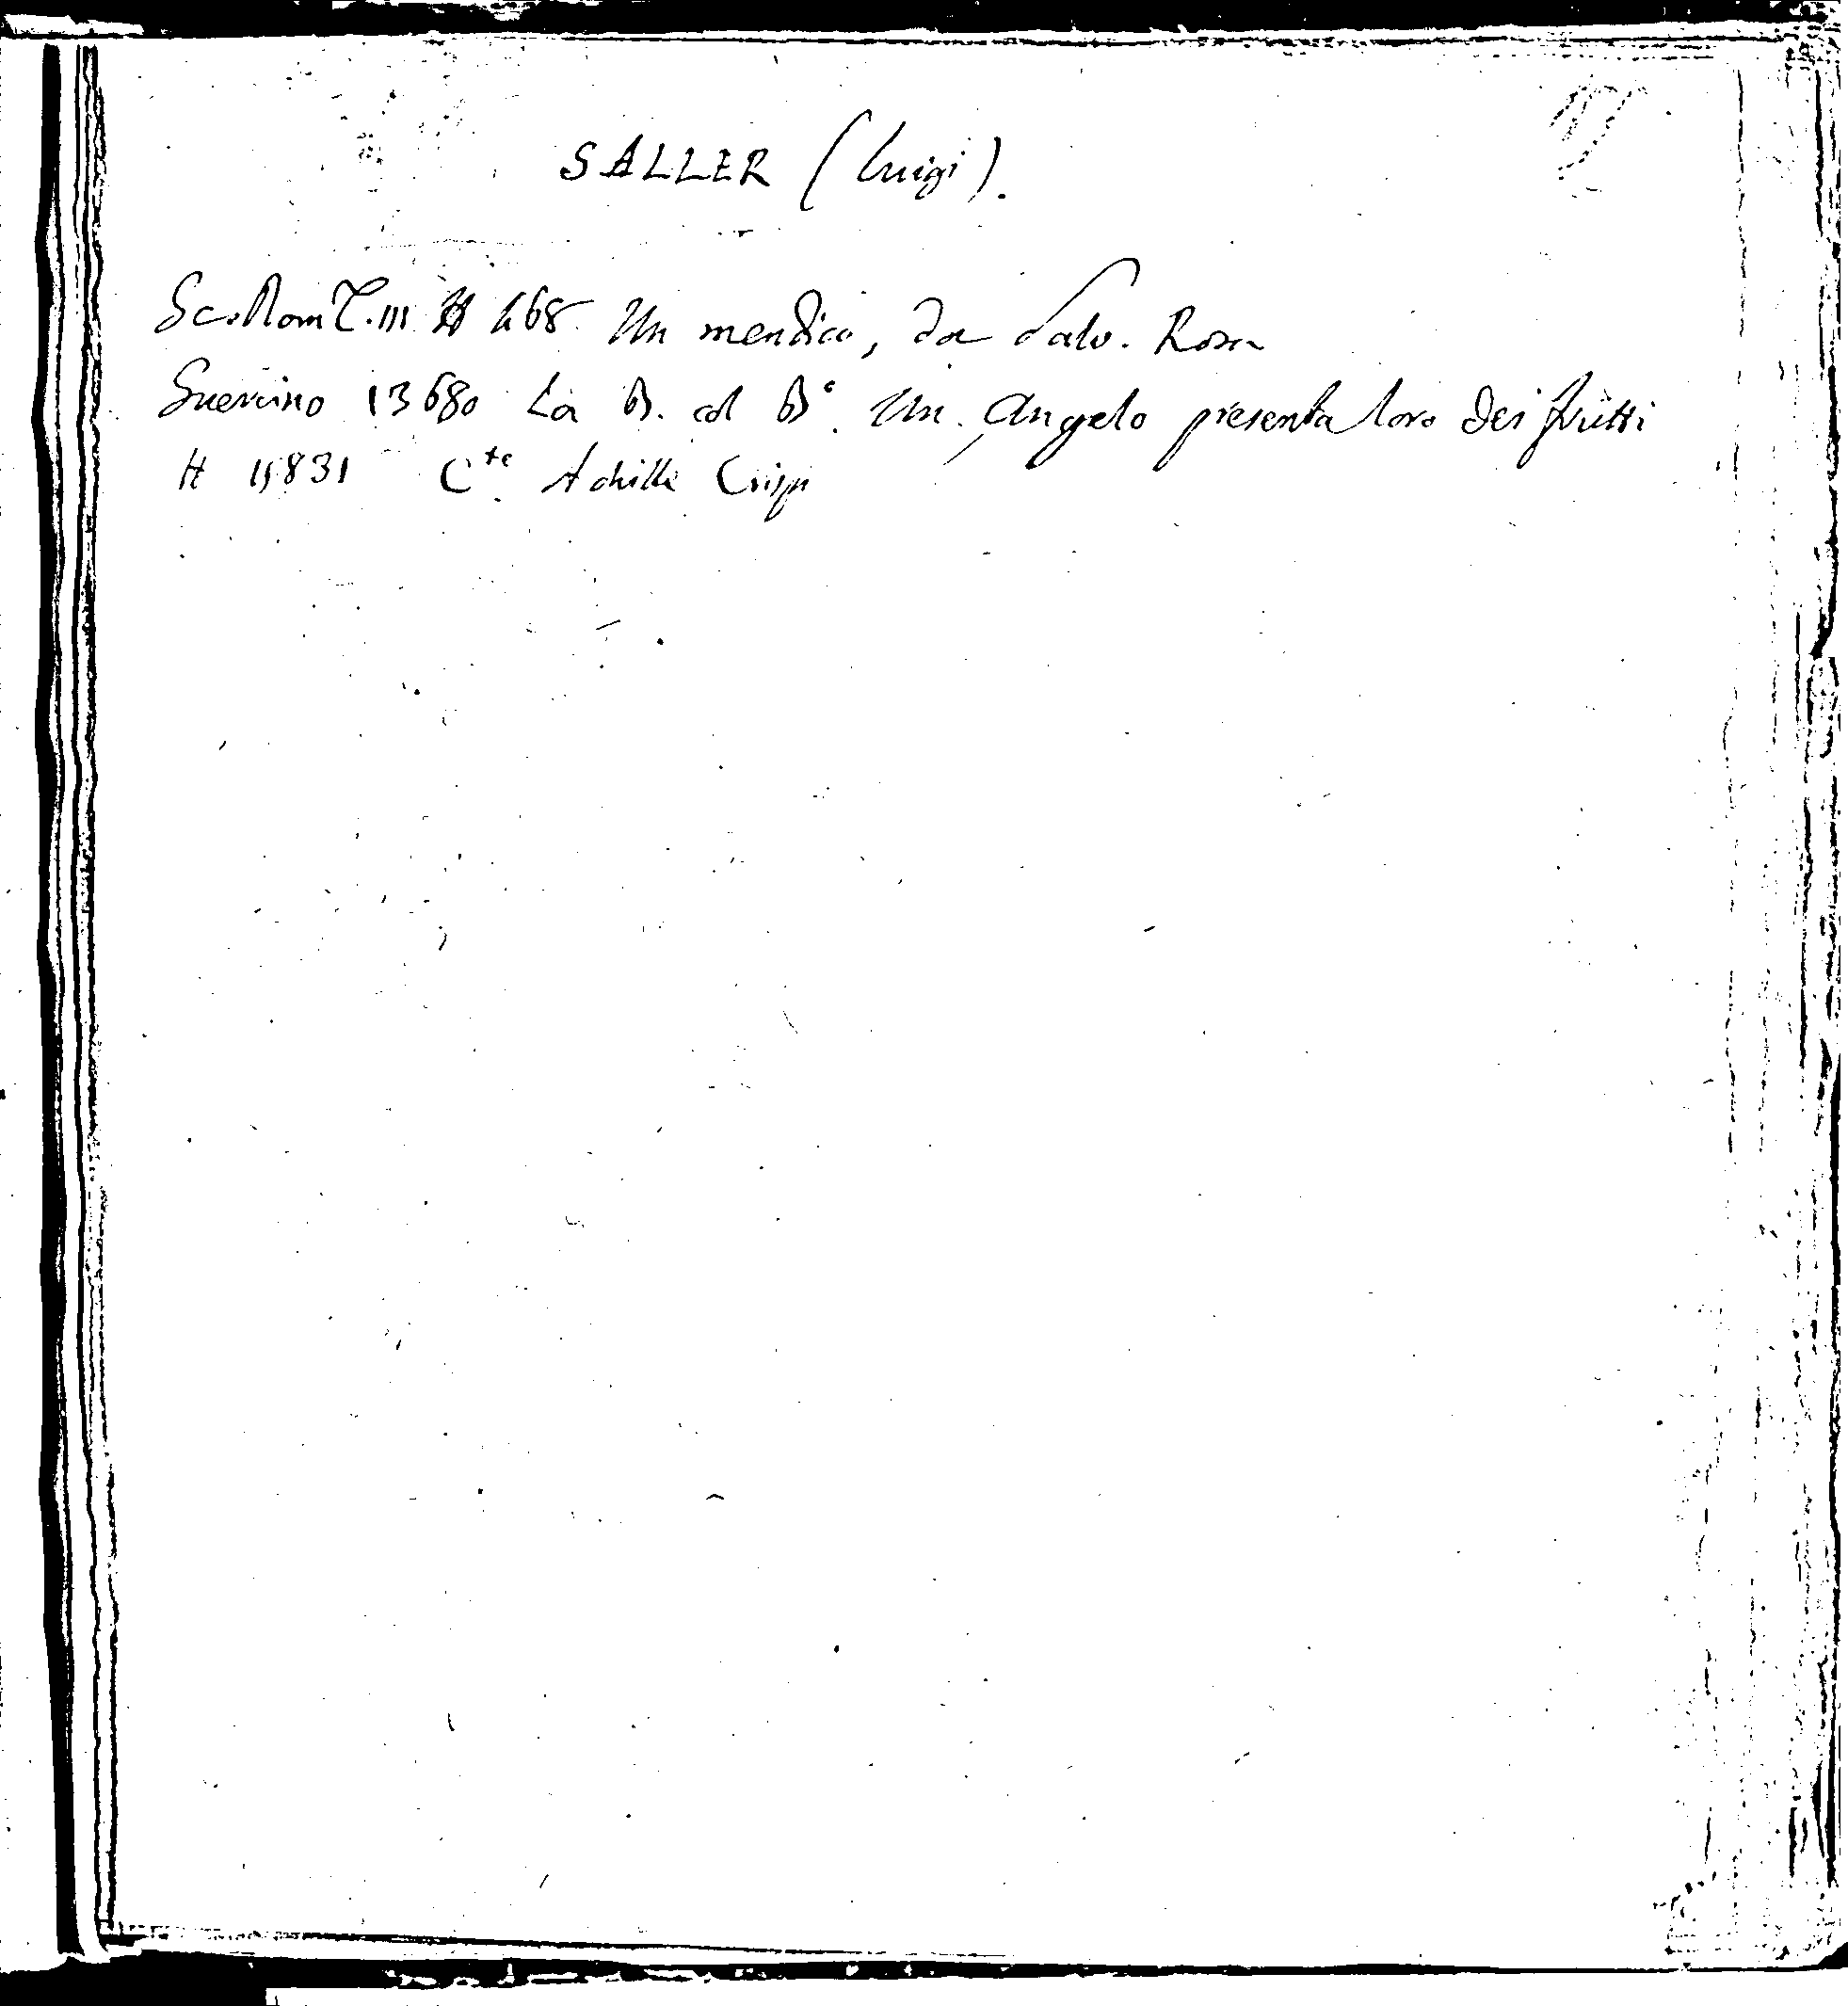 SALLER (Luigi).
Sc. Rom T. III H 468 Un mendico, da Salv. Rosa
Guercino 13680 La B. col Bº. Un Angelo presenta loro dei frutti
H 15831 Cte Achille Crispi